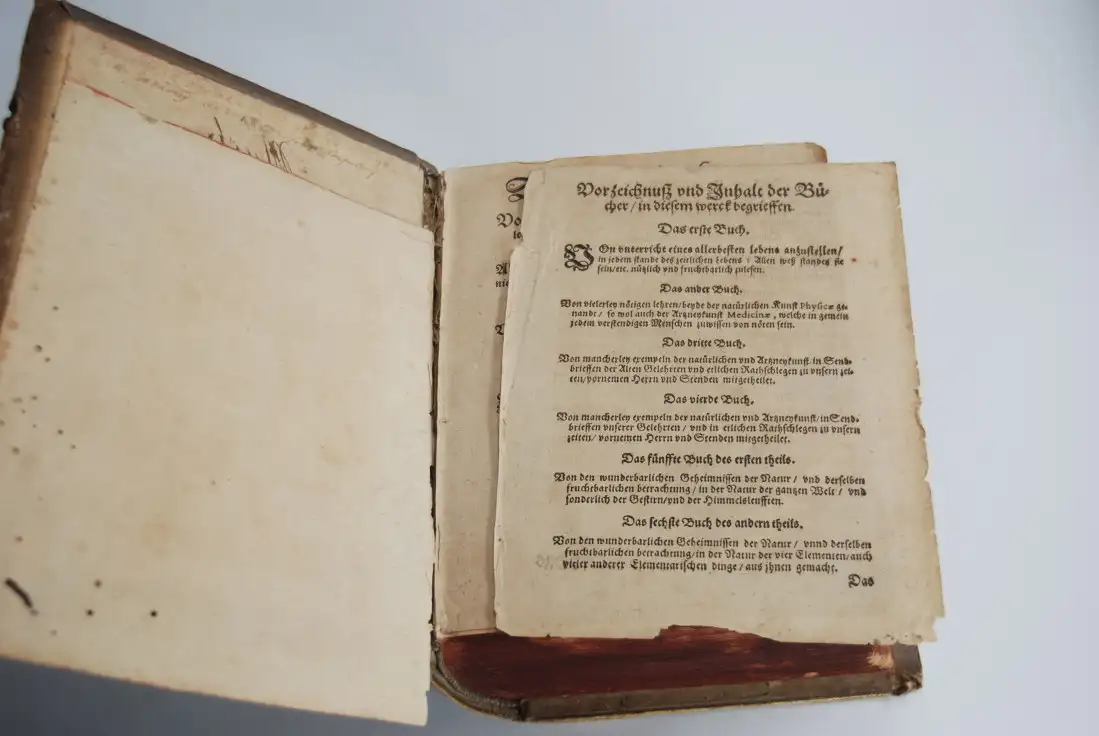 Vorzeichnuß vnd Inhalt der Bü-
cher / in diesem werck begrieffen.
Das erste Buch.
VOn vnterricht eines allerbesten lebens anzustellen /
in jedem stande des zeitlichen Lebens : Allen weß standes sie
sein / etc. nützlich vnd fruchtbarlich zulesen.
Das ander Buch.
Von vielerley nötigen lehren / beyde der natürlichen Kunst Physicæ ge-
nandt / so wol auch der Artzneykunst Medicinæ, welche in gemein
jedem verstendigen Menschen zuwissen von nöten sein.
Das dritte Buch.
Von mancherley exempeln der natürlichen vnd Artzneykunst / in Send-
brieffen der Alten Gelehrten vnd etlichen Rathschlegen zu vnsern zei-
ten / vornemen Herrn vnd Stenden mitgetheilet.
Das vierde Buch.
Von mancherley exempeln der natürlichen vnd Artzneykunst / in Send-
brieffen vnserer Gelehrten / vnd in etlichen Rathschlegen zu vnsern
zeiten / vornemen Herrn vnd Stenden mitgetheilet.
Das fünffte Buch des ersten theils.
Von den wunderbarlichen Geheimnissen der Natur / vnd derselben
fruchtbarlichen betrachtung / in der Natur der gantzen Welt / vnd
sonderlich der Gestirn / vnd der Himmelsleufften.
Das sechste Buch des andern theils.
Von den wunderbarlichen Geheimnissen der Natur / vnnd derselben
fruchtbarlichen betrachtung / in der Natur der vier Elementen / auch
vieler anderer Elementischen dinge / aus jhnen gemacht.
Das